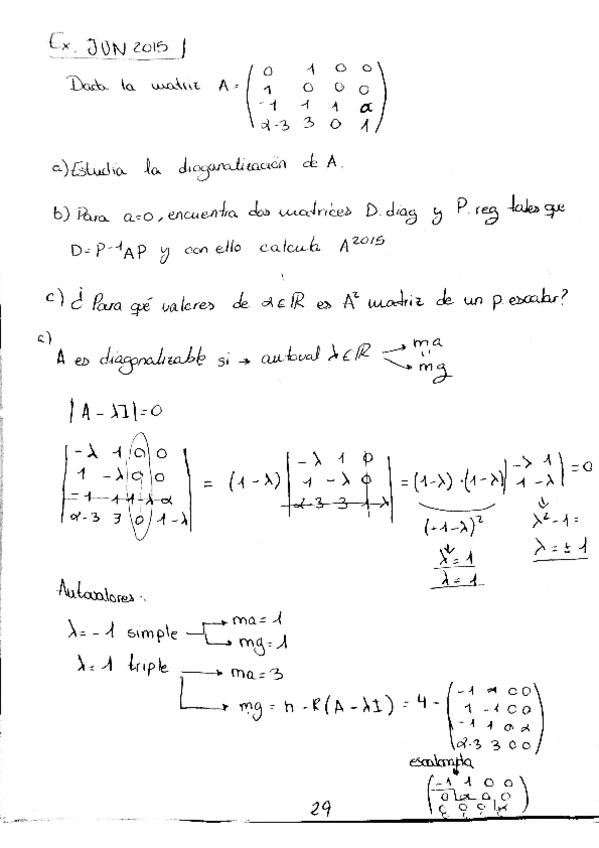 Ex. JUN 2015
Dada la matriz A = ( 0 1 0 0
1 0 0 0
-1 1 1 α
α-3 3 0 1 )
a) Estudia la diagonalización de A.
b) Para a=0, encuentra dos matrices D. diag y P. reg tales que
D=P⁻¹AP y con ello calcula A²⁰¹⁵
c) ¿Para qué valores de α∈ℝ es A² matriz de un p. escalar?
a)
A es diagonalizable si → autoval λ∈ℝ → ma
=
→ mg
|A - λI| = 0
| -λ 1 0 0
1 -λ 0 0
-1 1 1-λ α
α-3 3 0 1-λ | = (1-λ) | -λ 1 0
1 -λ 0
α-3 3 1-λ | = (1-λ)·(1-λ) | -λ 1
1 -λ | = 0
(-1-λ)²
λ=1
λ=1
λ²-1=
λ=±1
Autovalores:
λ=-1 simple → ma=1
→ mg=1
λ=1 triple → ma=3
→ mg = n - R(A-λI) = 4 - ( -1 1 0 0
1 -1 0 0
-1 1 0 α
α-3 3 0 0 )
( -1 1 0 0
0 α 0 0
0 0 0 α )
29